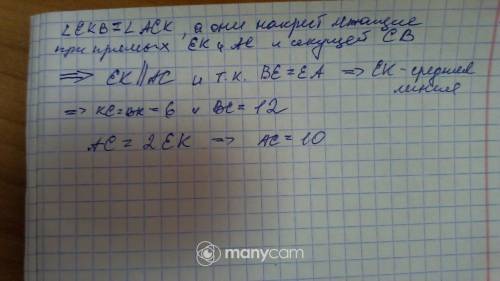 ∠EKB=∠ACK, а они накрест лежащие
при прямых EK и AC и секущей CB
⇒ EK||AC и т.к. BE=EA ⇒ EK-средняя линия
⇒ KC=BK=6 и BC=12
AC=2EK ⇒ AC=10
manycam